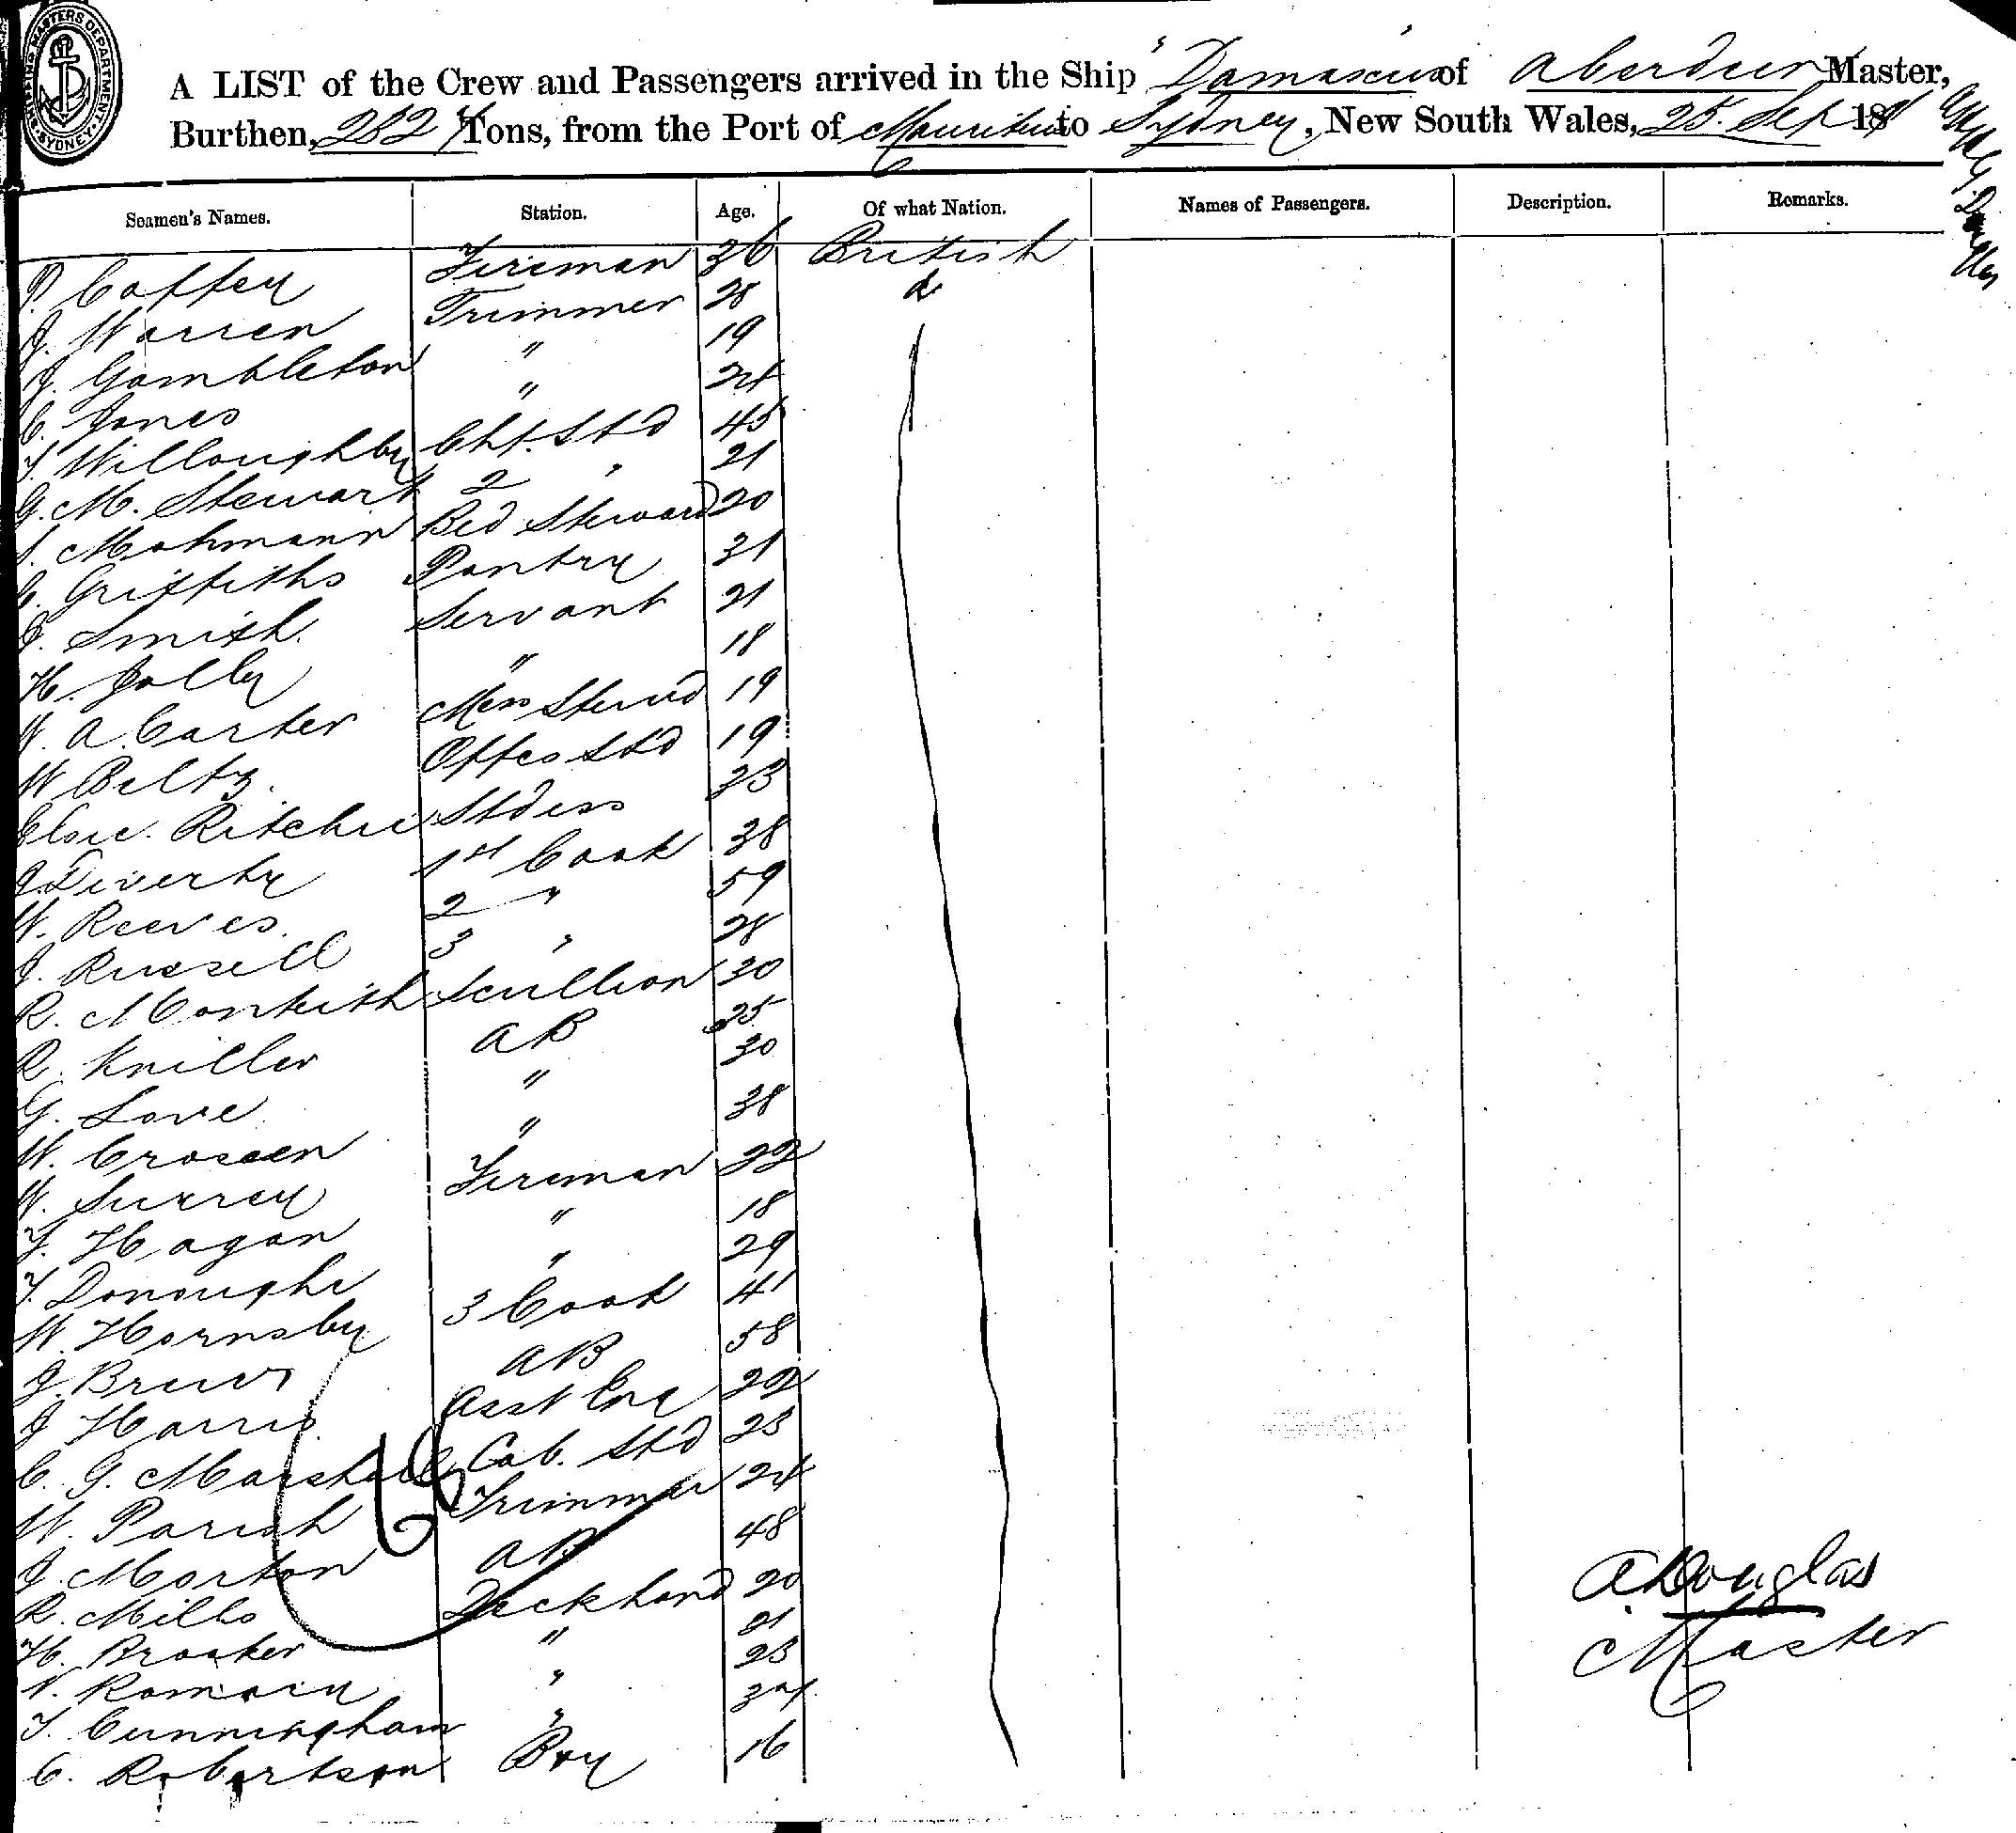 SHIPPING MASTERS DEPARTMENT SYDNEY
A LIST of the Crew and Passengers arrived in the Ship "Damascus of Aberdeen Master,
Burthen, Tons, from the Port of Mauritius to Sydney, New South Wales, 25. Sep 18
Seamen's Names. Station. Age. Of what Nation. Names of Passengers. Description. Remarks.
P. Coffey Fireman 36 British
J. Warren Trimmer 28 do
J. Gambleton " 19
C. Jones " 24
T. Willoughby Cht. Std 45
G. M. Stewart 2 " 21
Mohmann Bed Steward 20
C. Griffiths Pantry 31
J. Smith. Servant 21
H. Jolly " 18
W. A. Carter Mess Stewd 19
W. Beltz. Offes Std 19
Ritchie Stdess 33
J. Liverty 1st Cook 38
W. Reeves. 2 " 59
J. Russell 3 " 28
R. Monteith Scullion 30
R. Kniller AB 25
G. Love " 30
W. Crossen " 38
W. Surrey Fireman 22
T. Hagan " 18
T. Donoughe " 29
W. Hornsby 3 Cook 41
J. Brewer AB 58
J. Harris. Asst Eng 22
C. G. Marshall Cab. Std 23
W. Parish Trimmer 24
J. Morton AB 48
R. Mills Deckhand 20
H. Brooker " 21
Romain " 23
T. Cunningham " 34
C. Robertson Boy 16
A. Douglas
Master